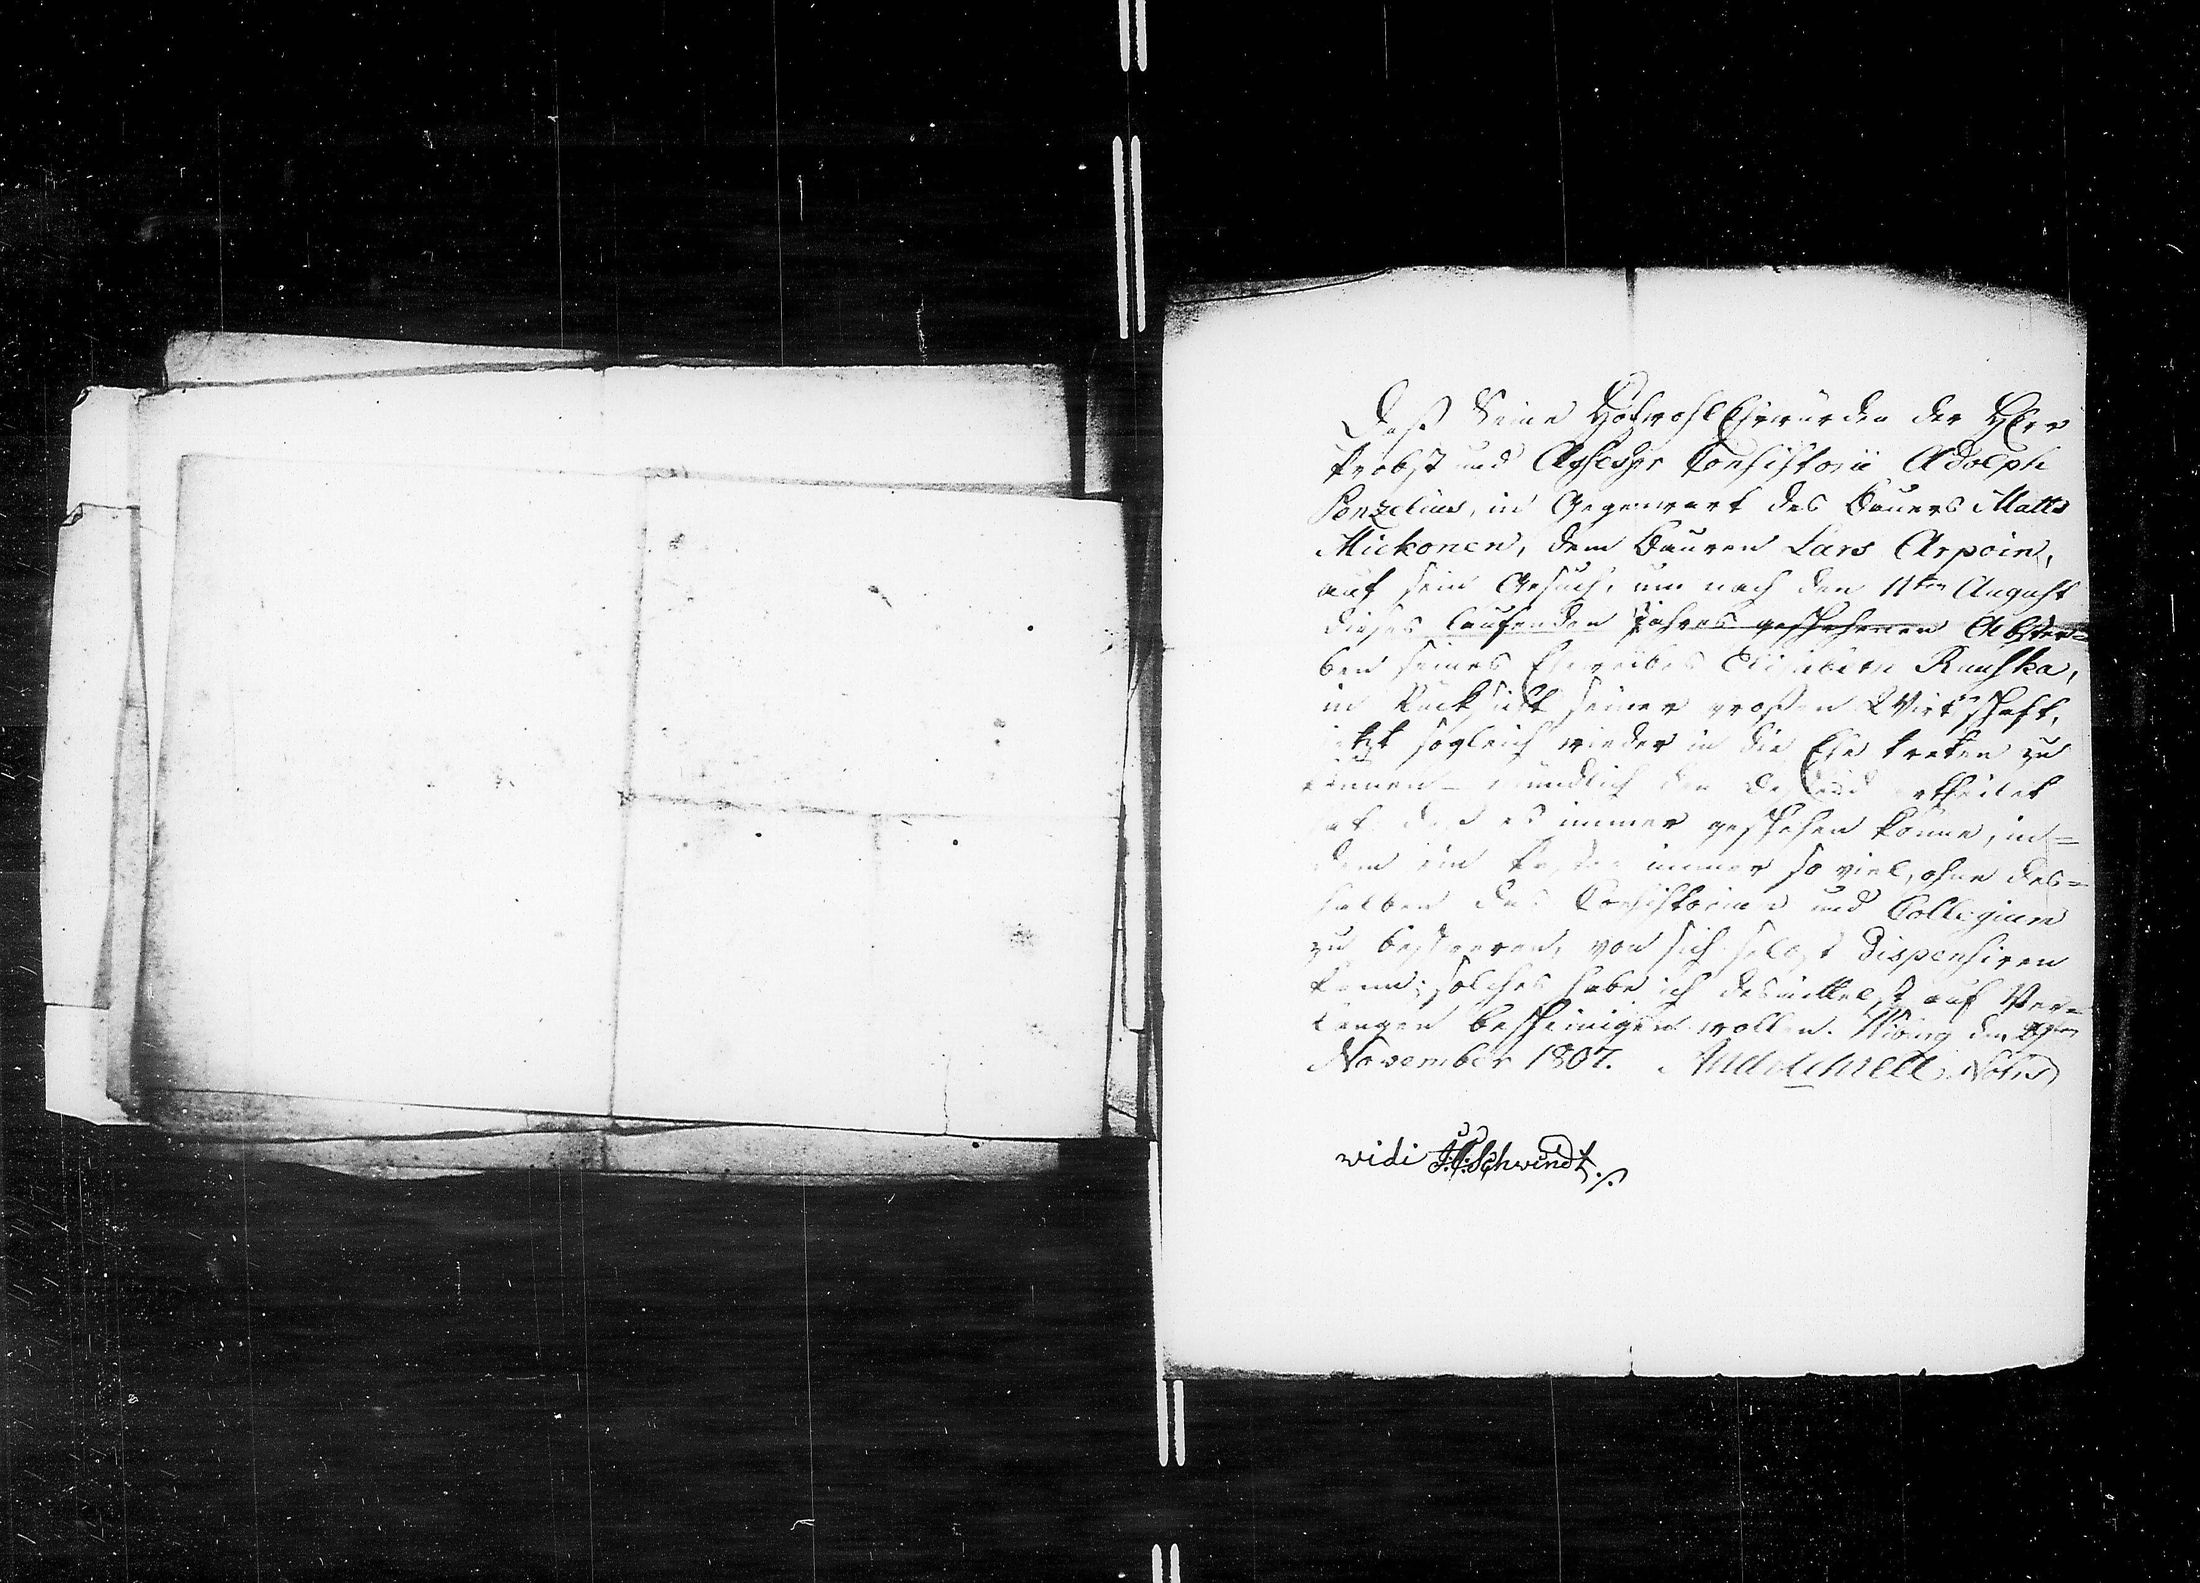 Daß Seine HochwohlEhrwürden der HErr
Probst und Assessor Consistorii Adolph
Ponzelius, in Gegenwart des Bauers Matts
Mickonen, dem Bauren Lars Arpoin,
auf sein Gesuch, um nach den 11ten August
dieses laufenden Jahres geschehenen Abster=
ben seines Eheweibes Ruuska,
in Rücksicht seiner großen Wirthschaft,
jetzt sogleich wieder in die Ehe treten zu
können - mündlich den Bescheid ertheilet
hat daß es immer geschehen könne, in=
dem ein Pastor immer so viel, ohne des=
halben das Consistorium und Collegium
zu beschweren, von sich selbst dispensiren
kann; solches habe ich desmittelst auf Ver=
langen bescheinigen wollen. Wiburg den
November 1807. Notar
widi Schwindt